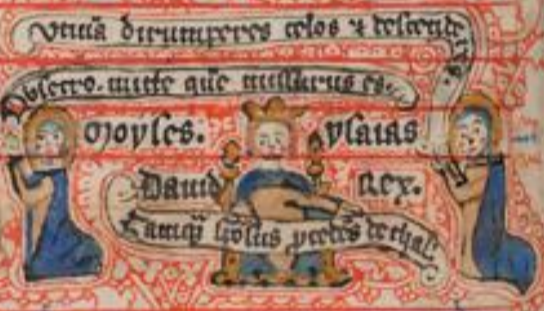 Utinā dirumperes celos ⁊ descenderes.
Obsecro. mitte quē missurus es.
Moyses. ysaias
Dauid Rex.
Tamq̄ sposus procedēs de thal.